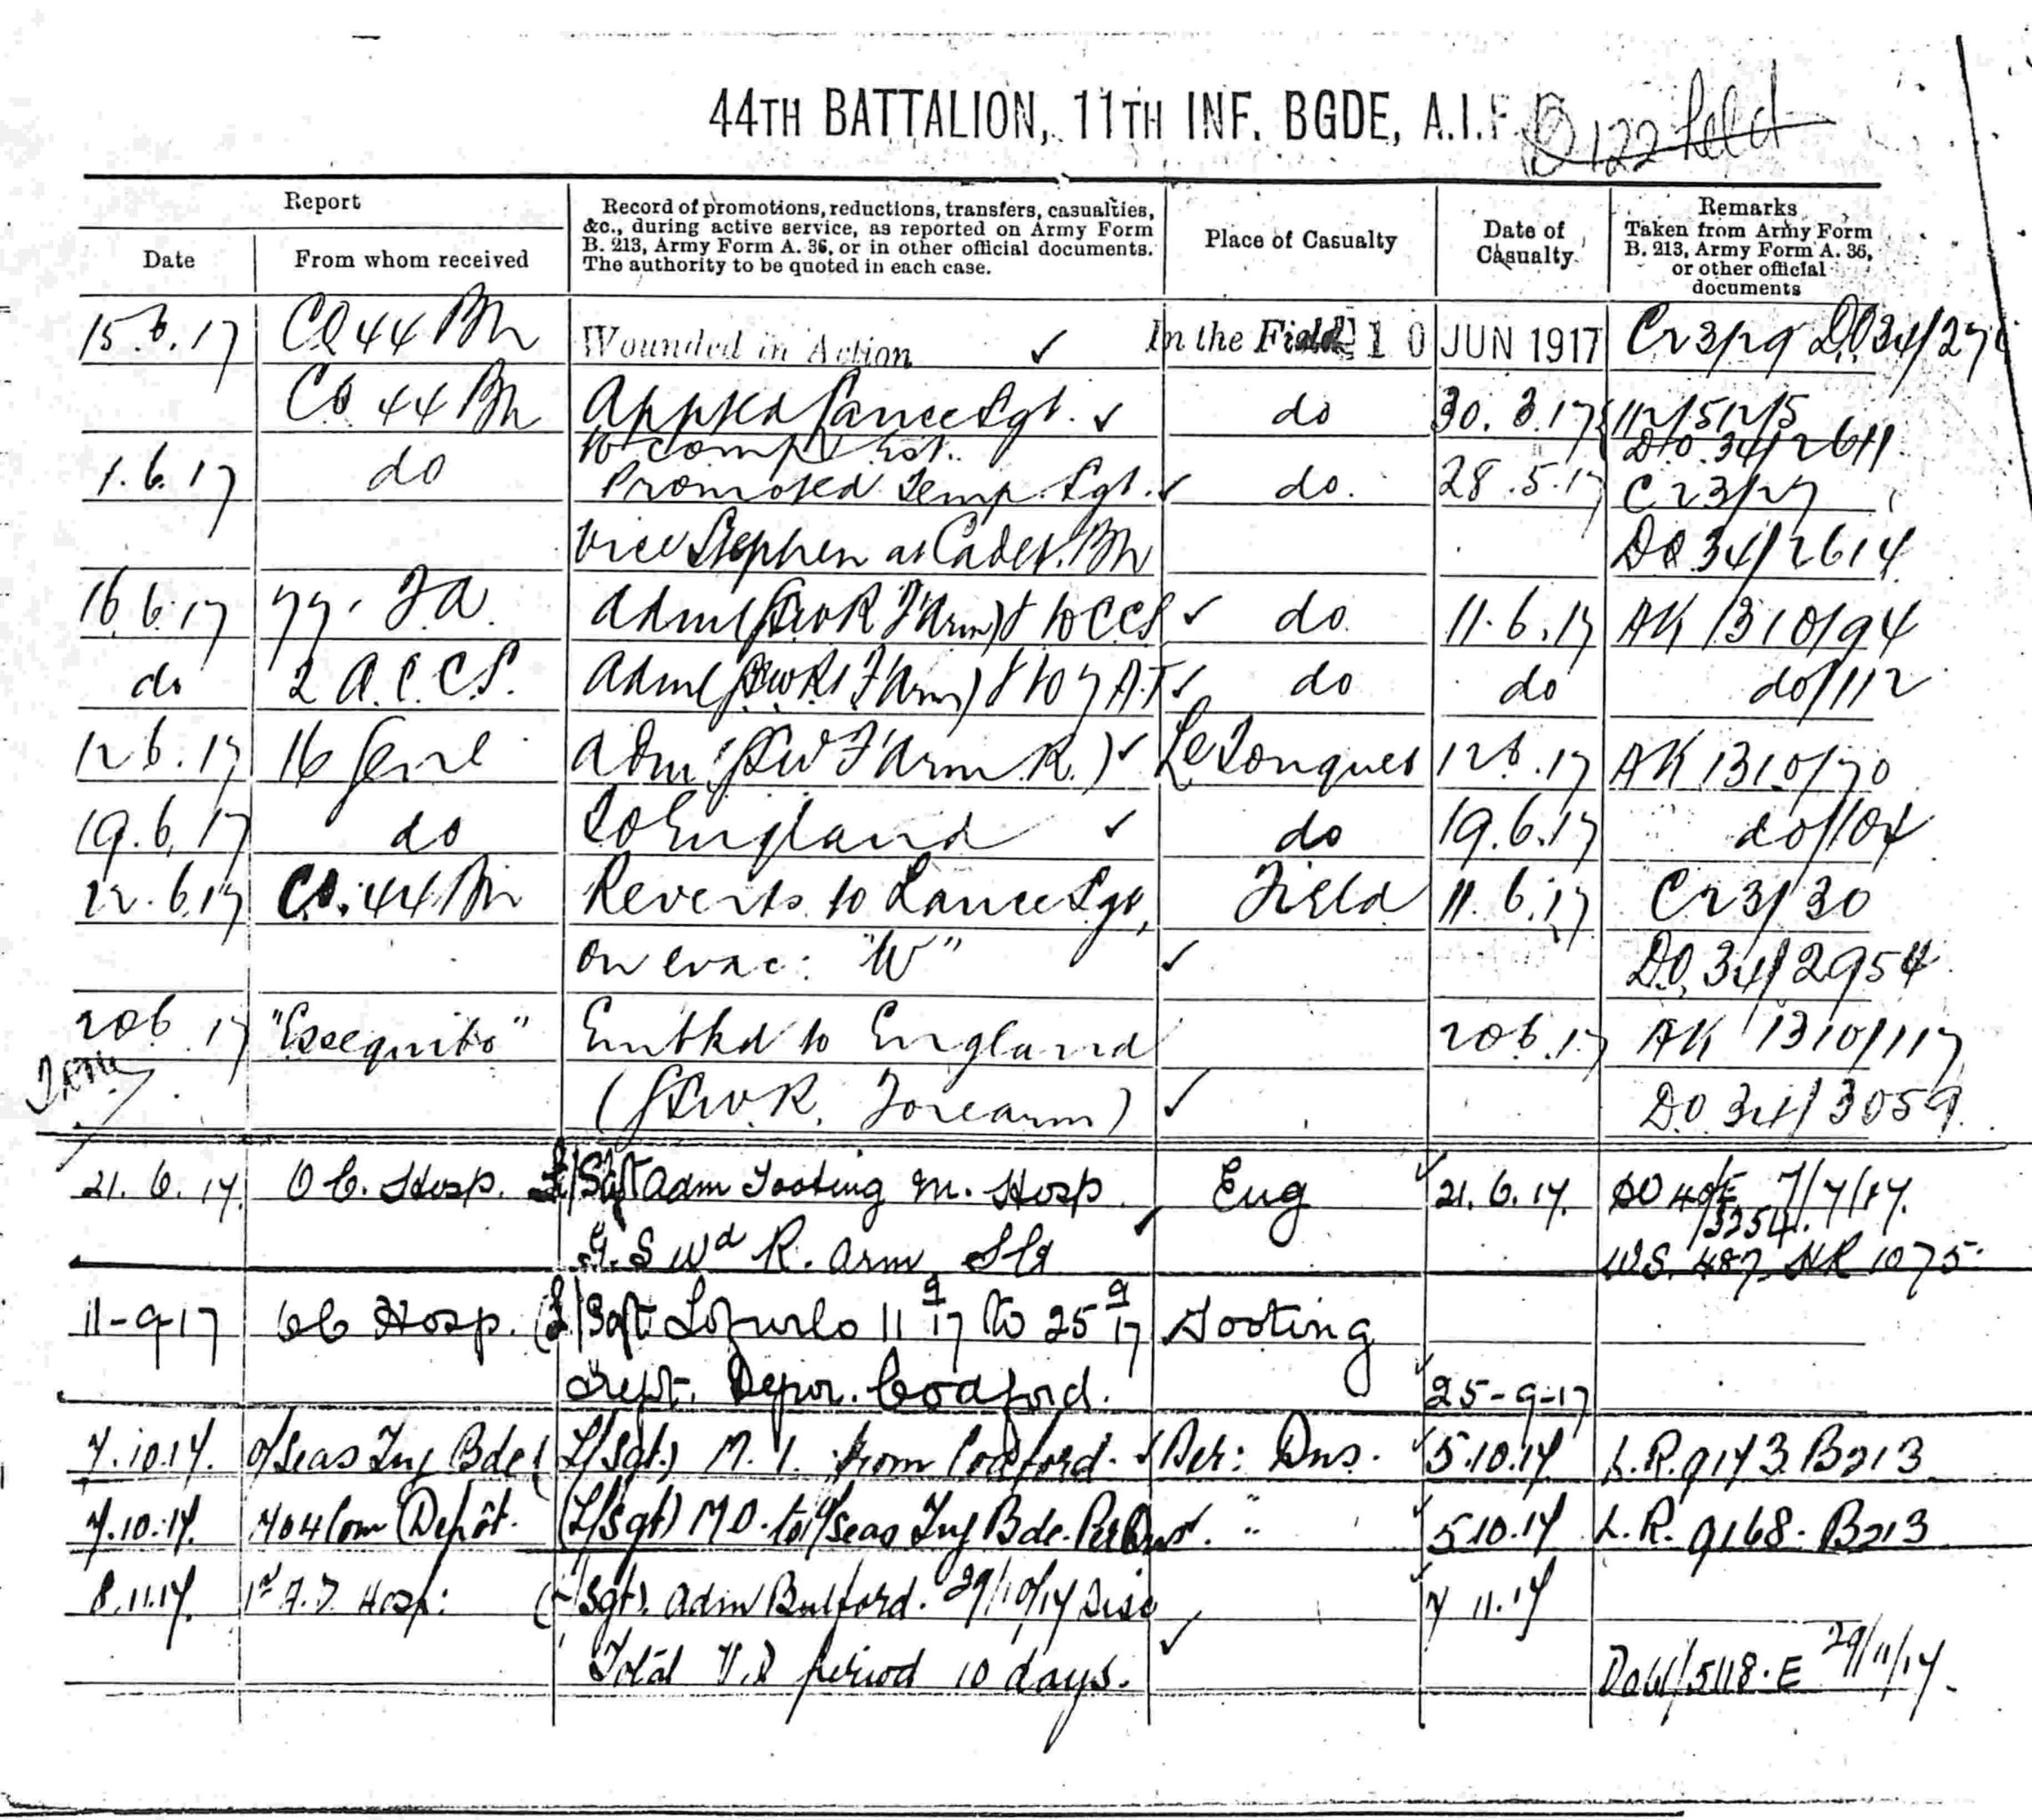 44TH BATTALION, 11TH INF. BGDE, A.I.F.
B122 Held
Report
Date
From whom received
Record of promotions, reductions, transfers, casualties, &c., during active service, as reported on Army Form B. 213, Army Form A. 36, or in other official documents. The authority to be quoted in each case.
Place of Casualty
Date of Casualty
Remarks Taken from Army Form B. 213, Army Form A. 36, or other official documents
15.6.17 CO 44 Bn Wounded in Action ✓ In the Field 10 JUN 1917 Cr3/29 DO34/
CO 44 Bn Apptd Lance Sgt. ✓ do 30.3.17 112/512/5
to comp Est. DO.34/2611
1.6.17 do Promoted Temp. Sgt. ✓ do. 28.5.17 Cr3/27
vice Stephen at Cadet. Bn DO 34/2614
16.6.17 77. F.A. Adm (SW R F'Arm) & to CCS ✓ do 11.6.17 AK 1310/94
do 2 A.C.C.S. Adm (SW R F'Arm) & to 7 A.T ✓ do do do/112
12.6.17 16 Genl Adm (SW F'Arm R.) ✓ 12.6.17 AK 1310/70
19.6.17 do To England ✓ do 19.6.17 do/104
22.6.17 CO. 44 Bn Reverts to Lance Sgt, Field 11.6.17 Cr3/30
on evac: "W" ✓ DO.34/2954
20.6.17 "Essequibo" Embkd to England 20.6.17 AK 1310/117
(SW R. Forearm) ✓ DO 34/3059
21.6.17. O C. Hosp. L/Sgt Adm Tooting M. Hosp Eng 21.6.17. DO 7/7/17.
/3254
G.S Wd R. arm Slt ✓ W.S. 487 NR 1075.
11-9-17 OC Hosp. (L/Sgt Lo furlo 11 9/17 to 25 9/17 Tooting
Rept. Depot. Codford. 25-9-17
7.10.17. O/Seas Tng Bde (L/Sgt.) M.I. from Codford. ✓ Per: Dns. 5.10.17 L.R.9173 B213
7.10.17. No 4 Com Depôt. (L/Sgt) M.O. to O/seas Tng Bde. Per Dns ✓ " 5.10.17 L.R. 9168. B213
8.11.17. 1st A.D. Hosp: (L/Sgt). Adm Bulford. 29/10/17 Disc 7 11.17
Total V.D period 10 days. ✓ DO61/5118.E 29/11/17.